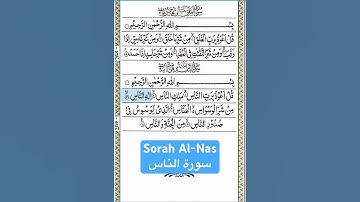 بِسْمِ اللهِ الرَّحْمٰنِ الرَّحِيْمِ
قُلْ اَعُوْذُ بِرَبِّ الْفَلَقِ مِنْ شَرِّ مَا خَلَقَ وَمِنْ شَرِّ غَاسِقٍ اِذَا
وَقَبَ وَمِنْ شَرِّ النَّفّٰثٰتِ فِي الْعُقَدِ وَمِنْ شَرِّ حَاسِدٍ اِذَا حَسَدَ
بِسْمِ اللهِ الرَّحْمٰنِ الرَّحِيْمِ
قُلْ اَعُوْذُ بِرَبِّ النَّاسِ مَلِكِ النَّاسِ اِلٰهِ النَّاسِ
مِنْ شَرِّ الْوَسْوَاسِ الْخَنَّاسِ الَّذِيْ يُوَسْوِسُ فِيْ
صُدُوْرِ النَّاسِ مِنَ الْجِنَّةِ وَالنَّاسِ
Sorah Al-Nas
سورة الناس